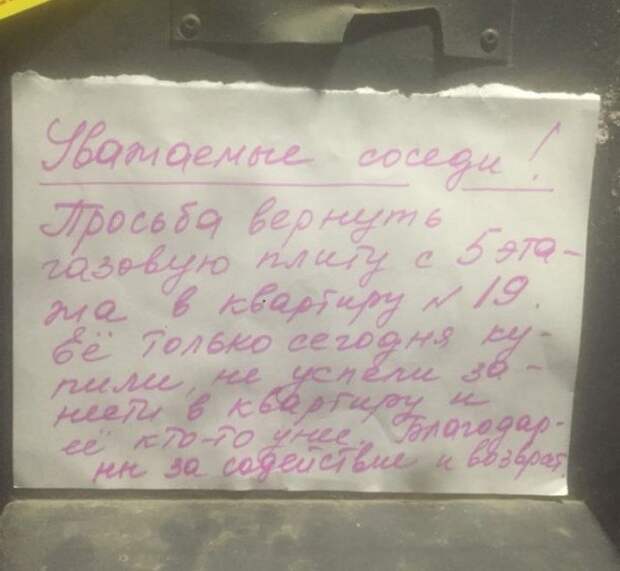 Уважаемые соседи!
Просьба вернуть
газовую плиту с 5 эта-
жа в квартиру № 19.
Её только сегодня ку-
пили, не успели за-
нести в квартиру и
её кто-то унес. Благодар-
ны за содействие и возврат.